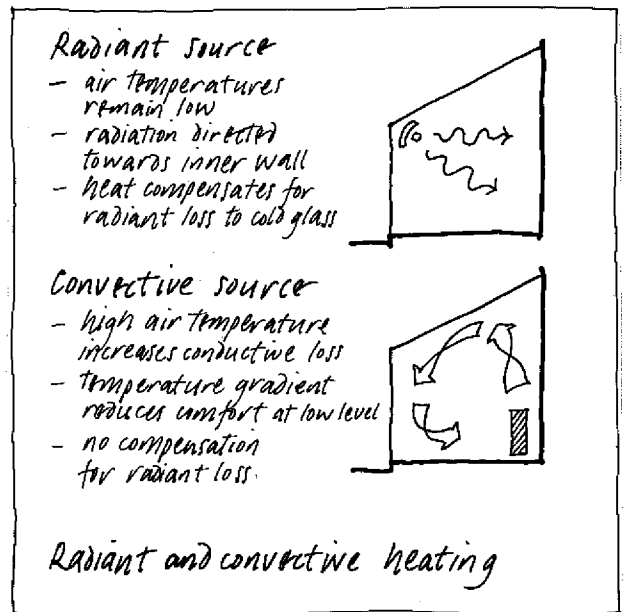 Radiant source
- air temperatures
remain low
- radiation directed
towards inner wall
- heat compensates for
radiant loss to cold glass
Convective source
- high air temperature
increases conductive loss
- temperature gradient
reduces comfort at low level
- no compensation
for radiant loss.
Radiant and convective heating